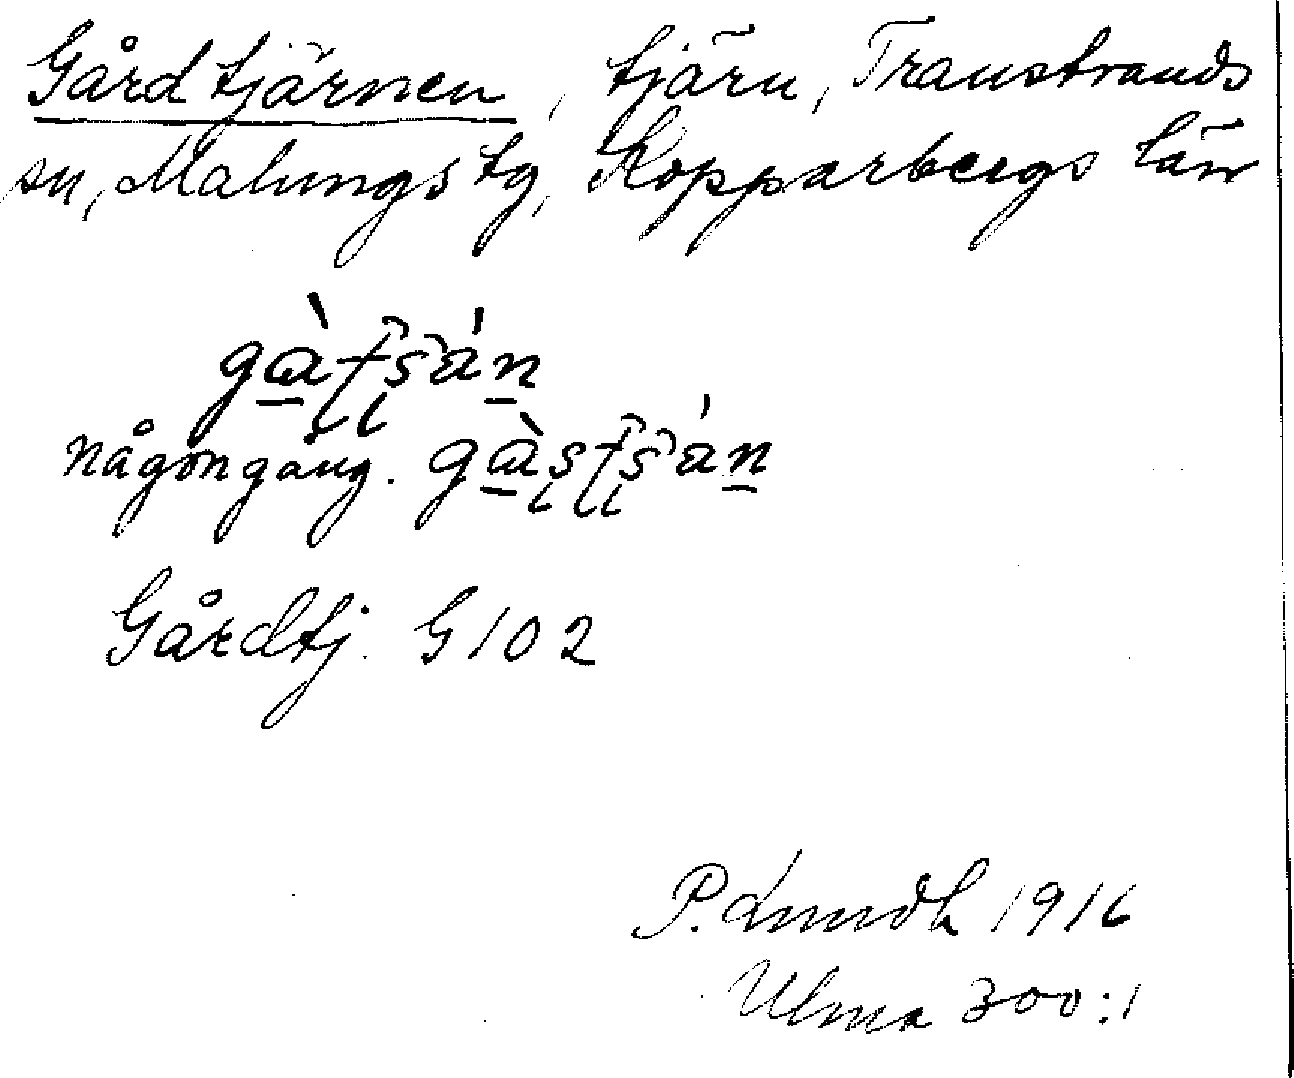 Gårdtjärnen, tjärn, Transtrands
sn, Malungs tg, Kopparbergs län
någon gång.
Gårdtj. G 102
P. Lundh 1916
Ulma 300:1